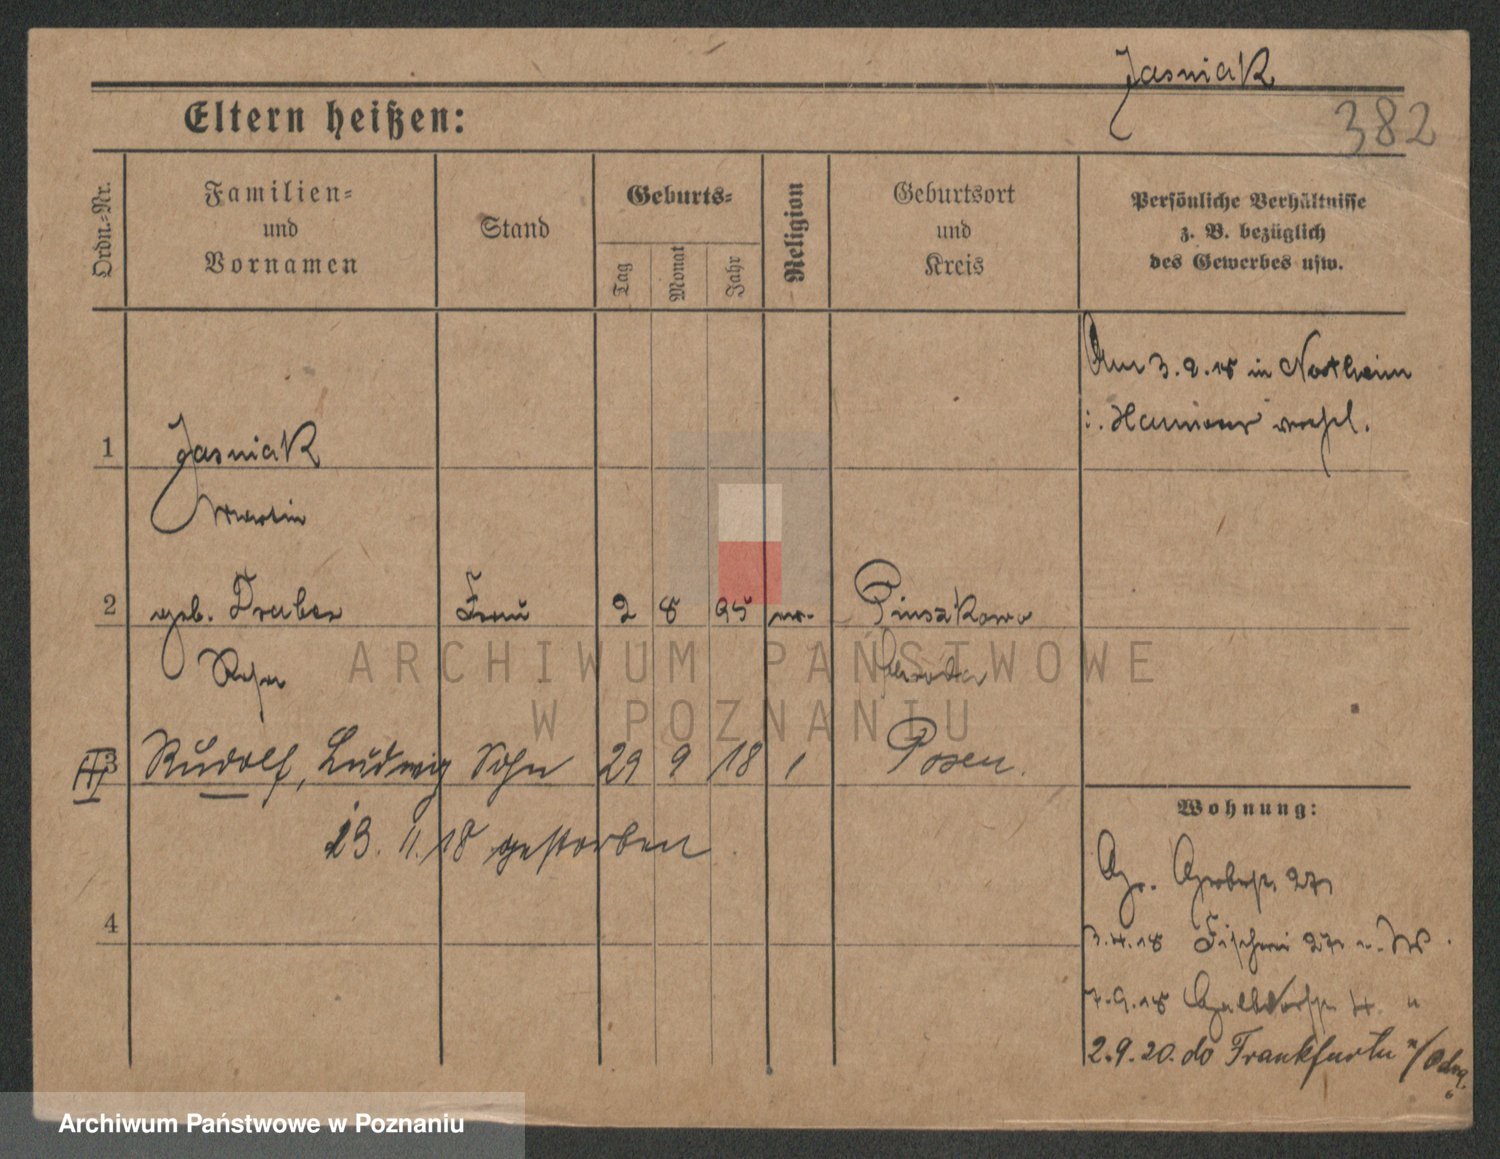 Jasniak
382
Eltern heißen:
Ordn.-Nr.
Familien- und Vornamen
Stand
Geburts-
Tag
Monat
Jahr
Religion
Geburtsort und Kreis
Persönliche Verhältnisse z. B. bezüglich des Gewerbes usw.
Am 3.2.18 in Northeim
i. Hannover verehel.
1 Jasniak
Martin
2 geb. Draber Frau 2 8 95
Schroda
3 Rudolf, Ludwig Sohn 29 9 18 / Posen.
23. 11. 18 gestorben
Wohnung:
Gr. Gerberstr. 27
3.4.18 Fischerei 27 W
7.9.18 4 "
2.9.20. do Frankfurtu n/Odrą
4
ARCHIWUM PAŃSTWOWE
W POZNANIU
Archiwum Państwowe w Poznaniu